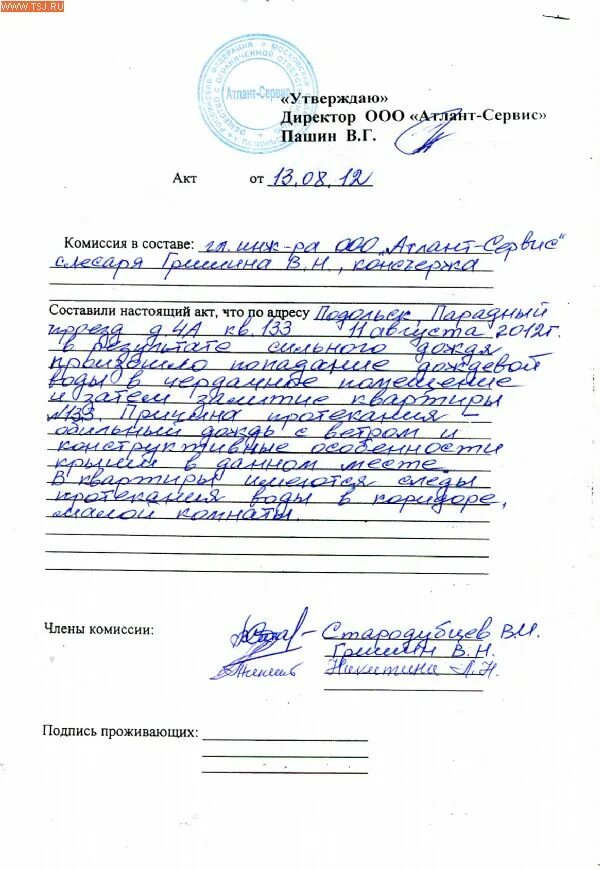 WWW.TSJ.RU
Атлант-Сервис
«Утверждаю»
Директор ООО «Атлант-Сервис»
Пашин В.Г.
Акт от 13.08.12
Комиссия в составе: гл. инж-ра ООО „Атлант-Сервис"
слесаря Гришина В.Н., консчержа
Составили настоящий акт, что по адресу Подольск Парадный
проезд д 4А кв. 133 11 августа 2012г.
в результате сильного дождя
произошло попадание дождевой
воды в чердачное помещение
и затем залитие квартиры
№133. Причина протекания –
обильный дождь с ветром и
конструктивные особенности
крыши в данном месте.
В квартиры имеются следы
протекания воды в коридоре,
малой комнаты.
Члены комиссии: – Стародубцев В.И.
Гришин В.Н.
Никитина Л.Н.
Подпись проживающих: